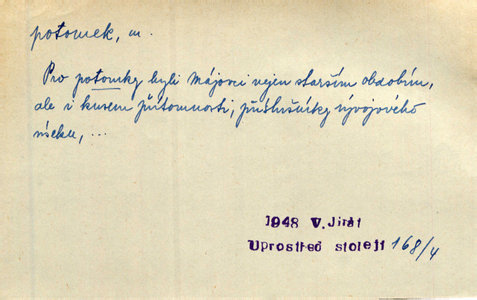 potomek, m.
Pro potomky byli Májovci nejen starším obdobím,
ale i kusem přítomnosti, příslušníky vývojového
úseku, ...
1948 V. Jirát
Uprostřed století 168/4